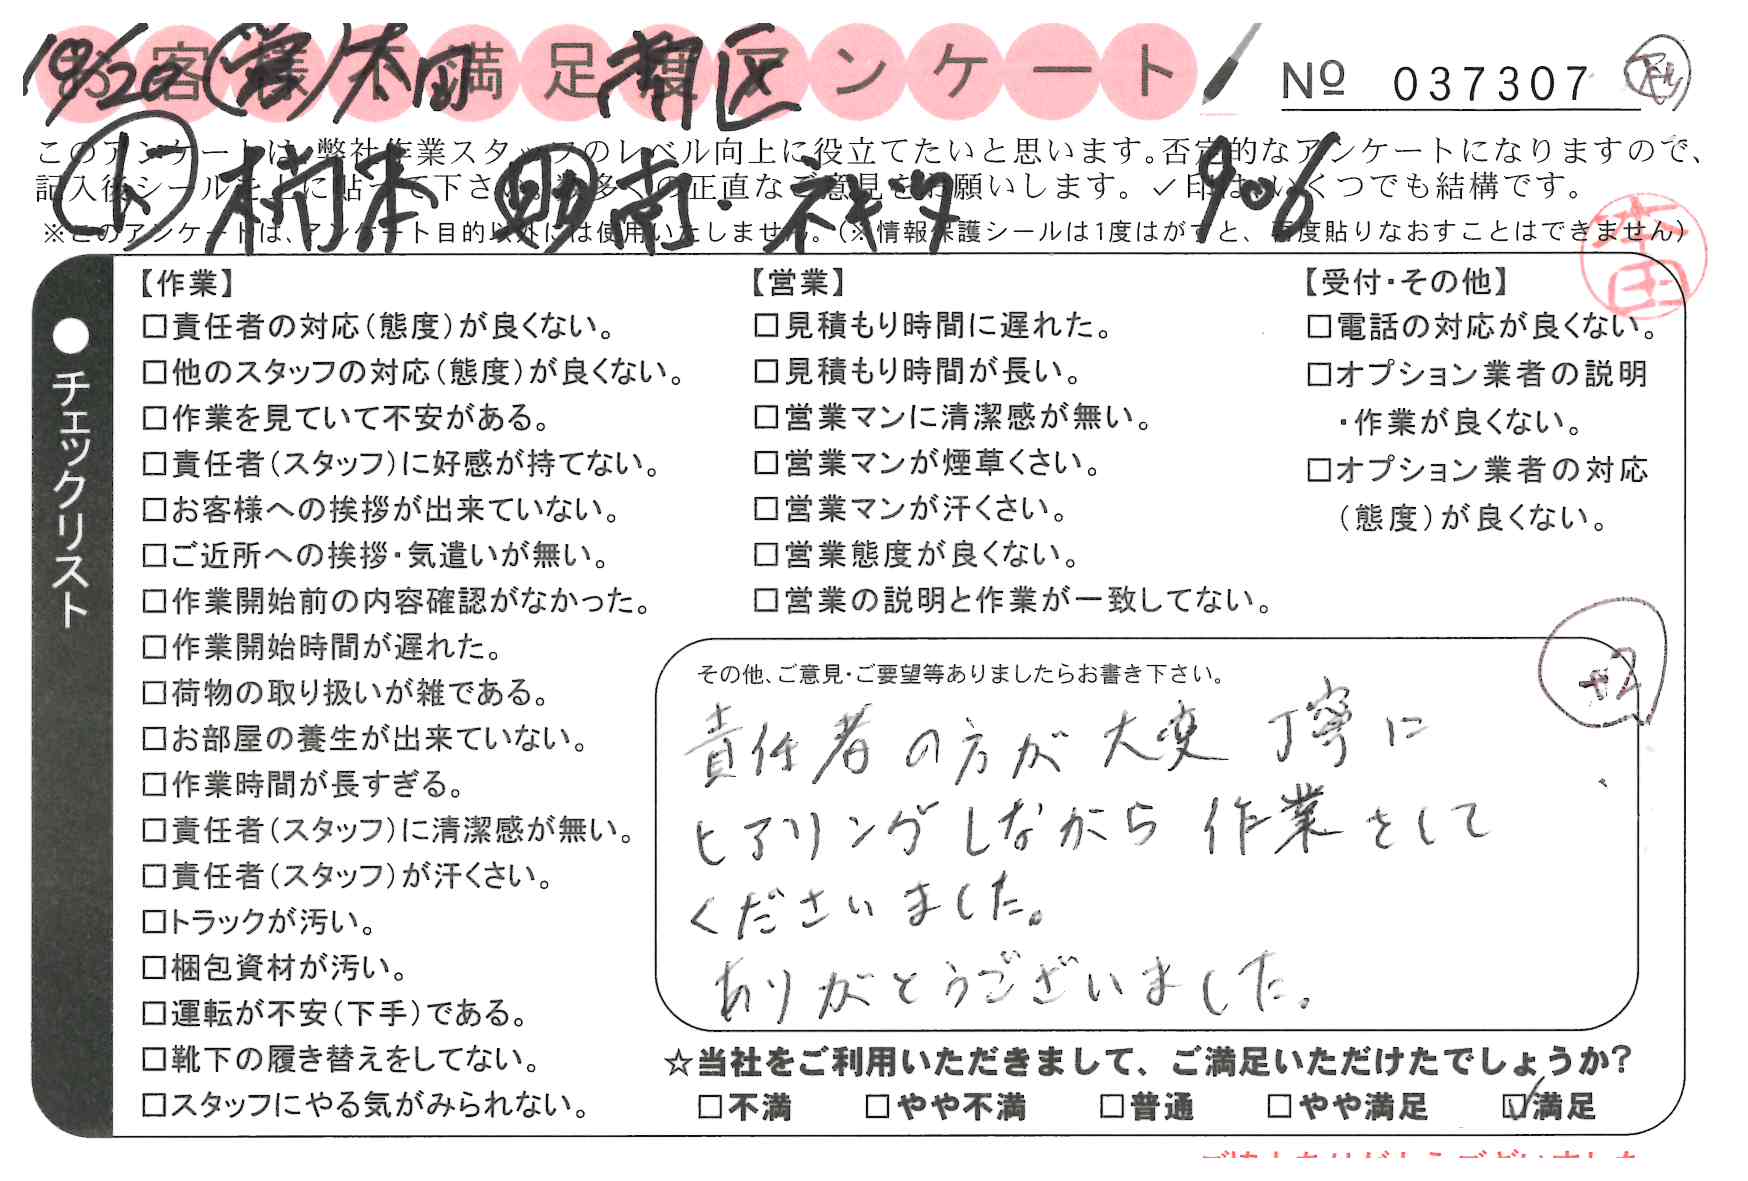 お客様不満足度アンケート
10/20 (業)太田 南区
№ 037307
このアンケートは、弊社作業スタッフのレベル向上に役立てたいと思います。否定的なアンケートになりますので、
記入後シールを上に貼って下さい。数多くの正直なご意見をお願いします。✓印は、いくつでも結構です。
906
※このアンケートは、アンケート目的以外には使用いたしません。(※情報保護シールは1度はがすと、再度貼りなおすことはできません)
本田
●チェックリスト
【作業】
□責任者の対応(態度)が良くない。
□他のスタッフの対応(態度)が良くない。
□作業を見ていて不安がある。
□責任者(スタッフ)に好感が持てない。
□お客様への挨拶が出来ていない。
□ご近所への挨拶・気遣いが無い。
□作業開始前の内容確認がなかった。
□作業開始時間が遅れた。
□荷物の取り扱いが雑である。
□お部屋の養生が出来ていない。
□作業時間が長すぎる。
□責任者(スタッフ)に清潔感が無い。
□責任者(スタッフ)が汗くさい。
□トラックが汚い。
□梱包資材が汚い。
□運転が不安(下手)である。
□靴下の履き替えをしてない。
□スタッフにやる気がみられない。
【営業】
□見積もり時間に遅れた。
□見積もり時間が長い。
□営業マンに清潔感が無い。
□営業マンが煙草くさい。
□営業マンが汗くさい。
□営業態度が良くない。
□営業の説明と作業が一致してない。
【受付・その他】
□電話の対応が良くない。
□オプション業者の説明
・作業が良くない。
□オプション業者の対応
(態度)が良くない。
+2
その他、ご意見・ご要望等ありましたらお書き下さい。
責任者の方が大変丁寧に
ヒアリングしながら作業をして
くださいました。
ありがとうございました。
☆当社をご利用いただきまして、ご満足いただけたでしょうか?
□不満 □やや不満 □普通 □やや満足 ☑満足